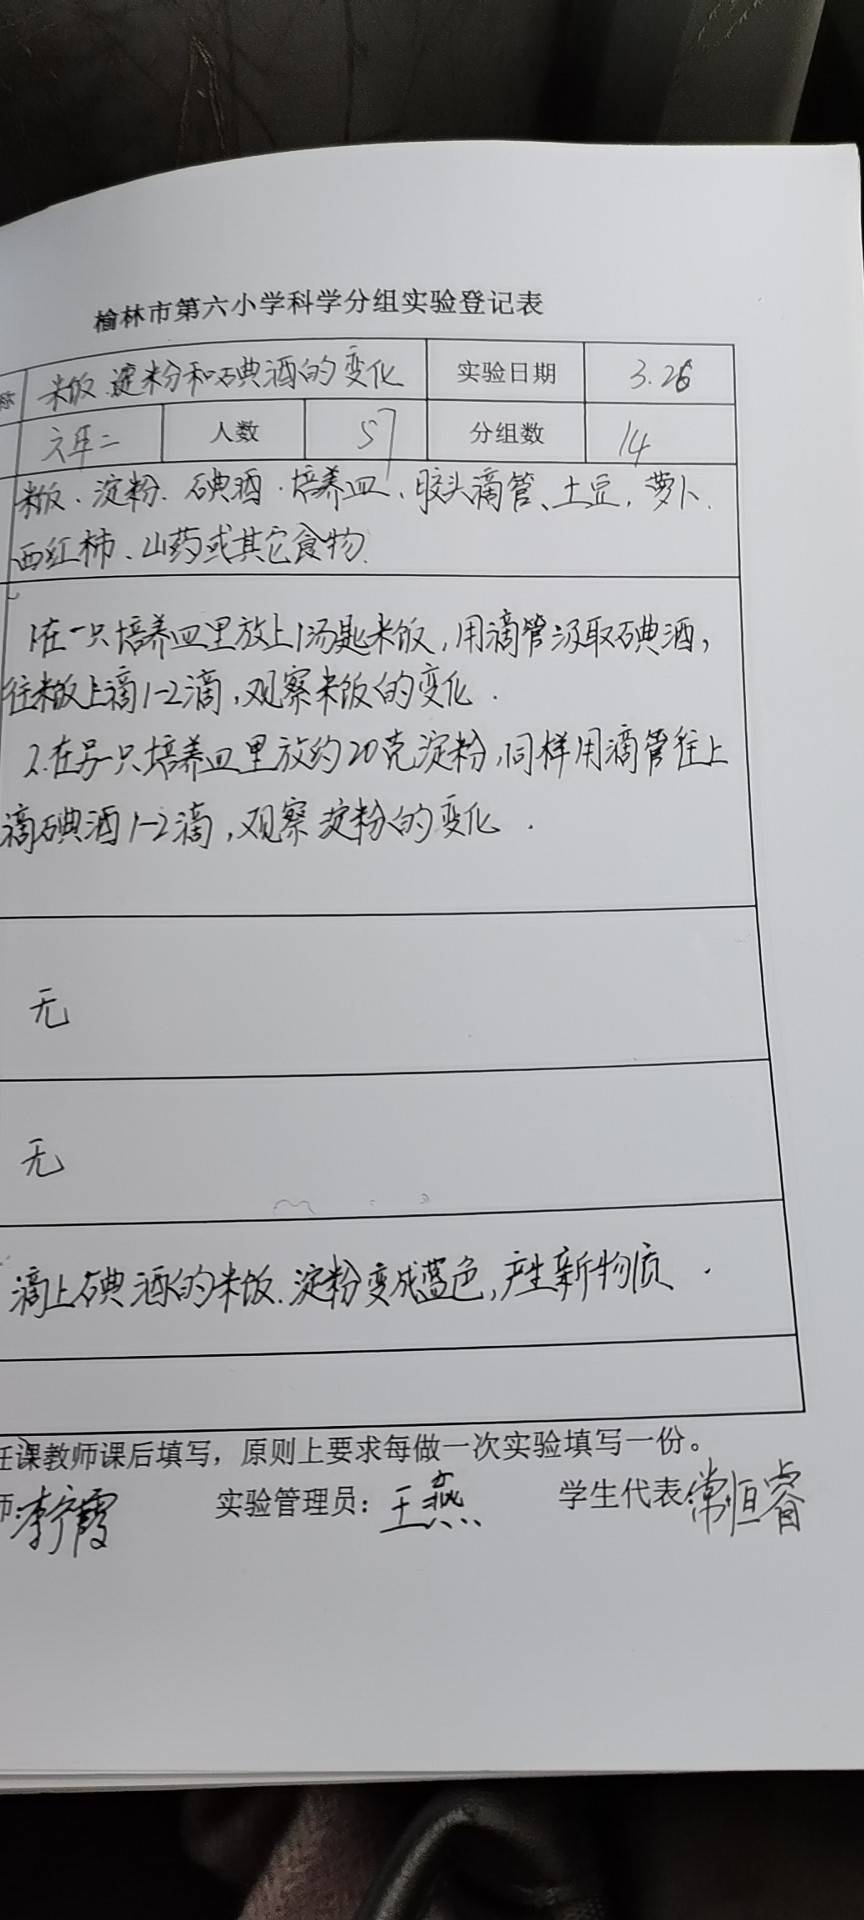 榆林市第六小学科学分组实验登记表
称 米饭.淀粉和碘酒的变化 实验日期 3.26
六年二 人数 57 分组数 14
米饭.淀粉.碘酒.培养皿、胶头滴管、土豆,萝卜.
西红柿、山药或其它食物.
1.在一只培养皿里放上1汤匙米饭,用滴管汲取碘酒,
往米饭上滴1-2滴,观察米饭的变化.
2.在另一只培养皿里放约20克淀粉,同样用滴管往上
滴碘酒1-2滴,观察淀粉的变化.
无
无
滴上碘酒的米饭.淀粉变成蓝色,产生新物质.
任课教师课后填写，原则上要求每做一次实验填写一份。
师 李宁霞 实验管理员：王燕 学生代表 常恒睿